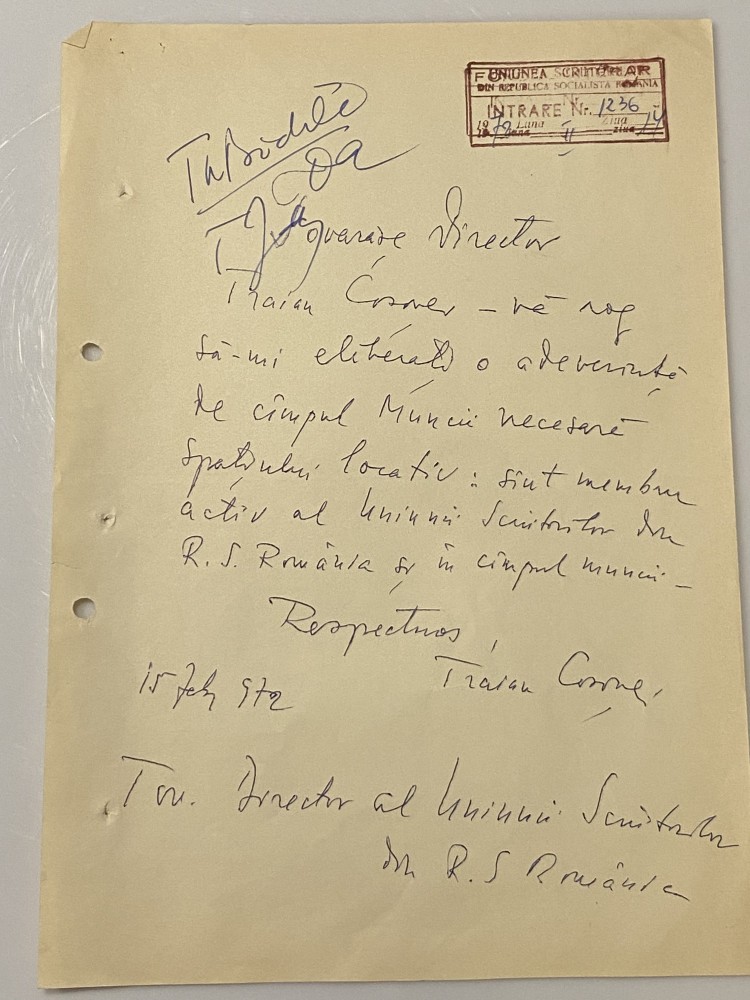 UNIUNEA SCRIITORILOR
DIN REPUBLICA SOCIALISTA ROMÂNIA
INTRARE Nr. 1236
1972 Luna II ziua
Da
Tovarașe Director
Traian Coșovei – vă rog
să-mi eliberați o adeverință
de cîmpul Muncii necesară
spațiului locativ : sînt membru
activ al Uniunii Scriitorilor din
R. S. România și în cîmpul muncii –
Respectuos,
15 Feb 972
Traian Coșovei
Tov. Director al Uniunii Scriitorilor
din R. S România